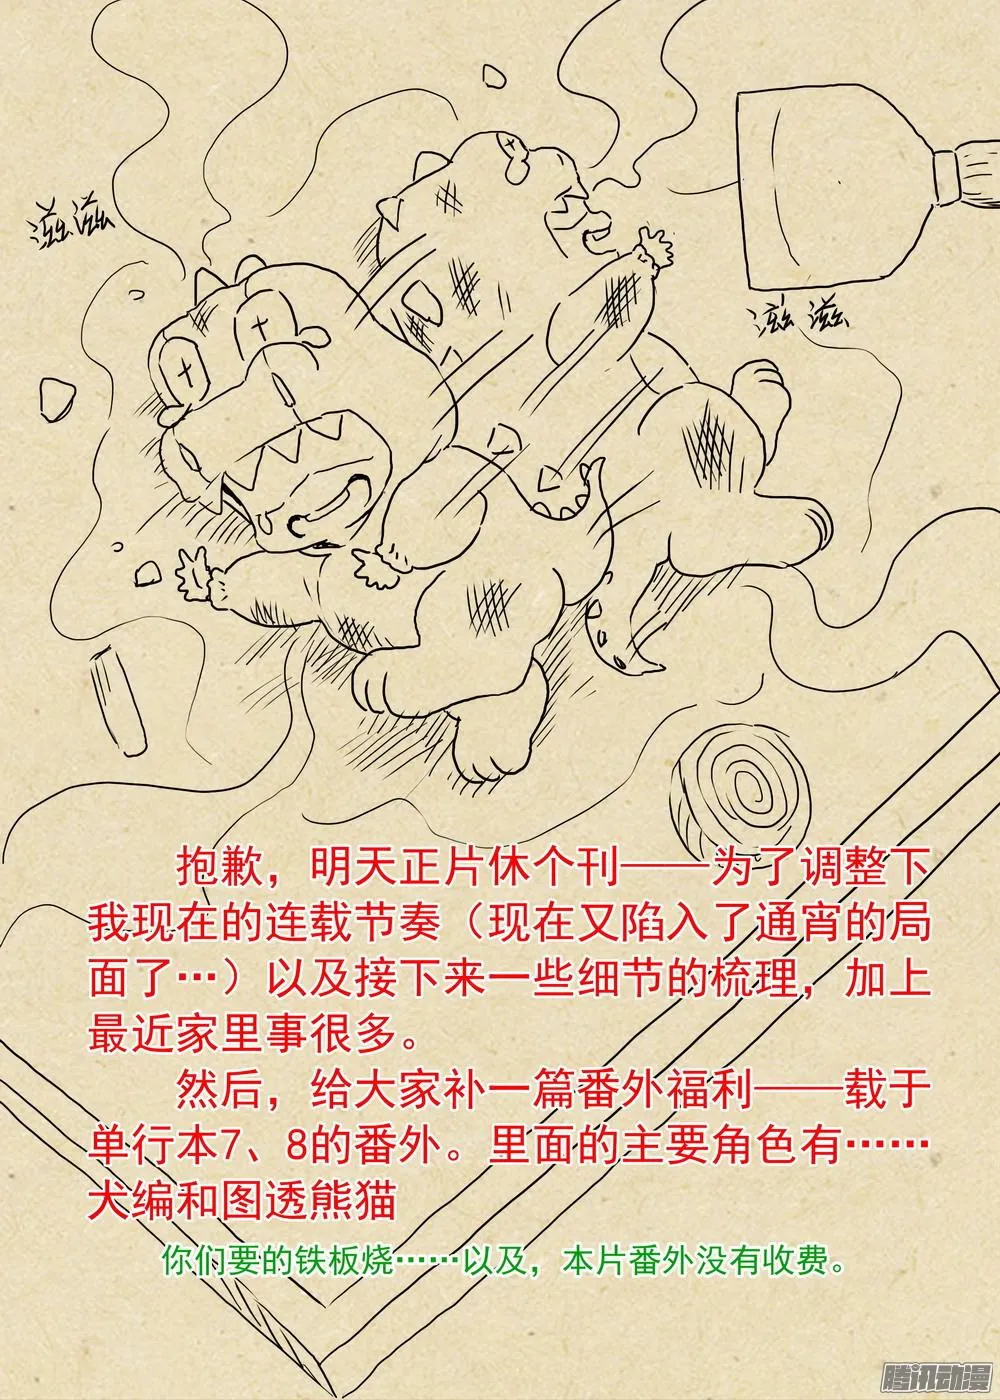 滋滋
滋滋
抱歉，明天正片休个刊——为了调整下
我现在的连载节奏（现在又陷入了通宵的局
面了…）以及接下来一些细节的梳理，加上
最近家里事很多。
然后，给大家补一篇番外福利——载于
单行本7、8的番外。里面的主要角色有……
犬编和图透熊猫
你们要的铁板烧……以及，本片番外没有收费。
腾讯动漫